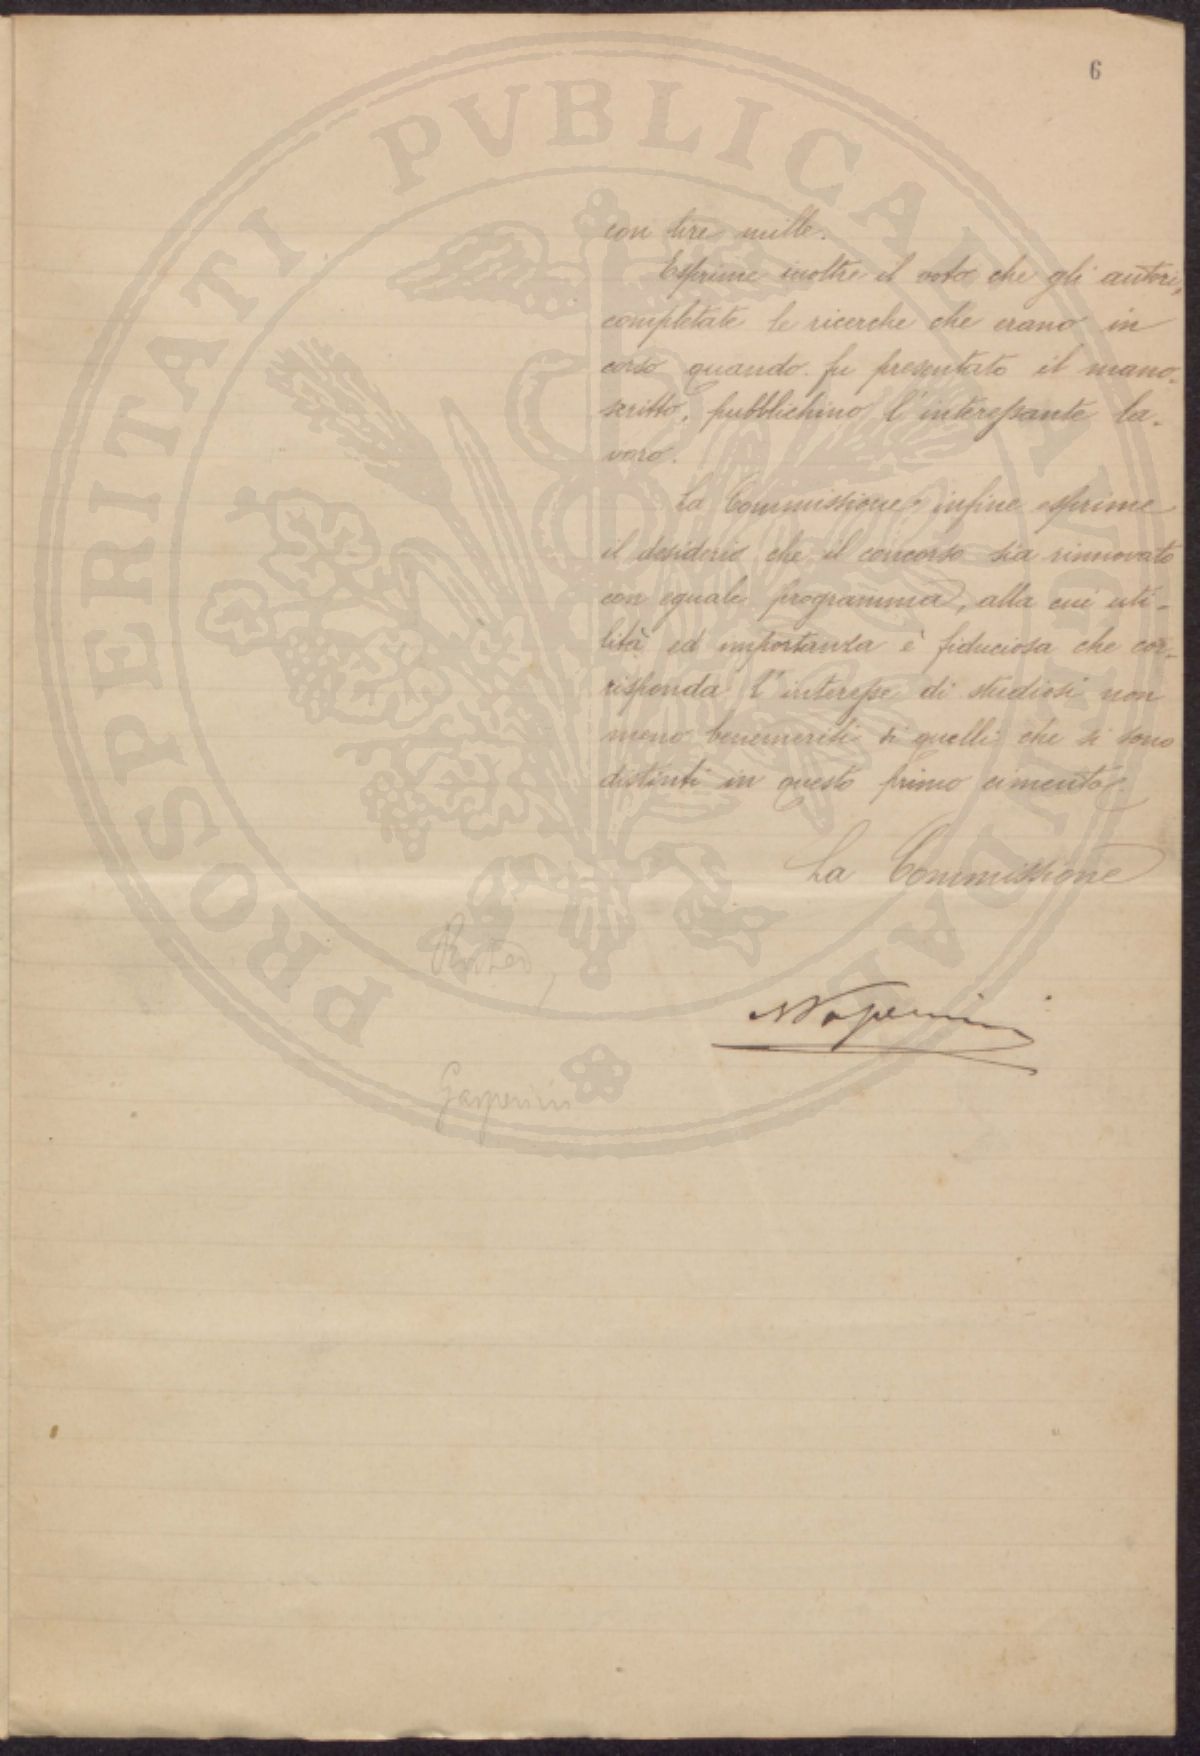 6
con lire mille.
Esprime inoltre il voto che gli autori,
completate le ricerche che erano in
corso quando fu presentato il mano-
scritto, pubblichino l'interessante la-
voro.
La Commissione, infine esprime
il desiderio che il concorso sia rinnovato
con eguale programma, alla cui uti-
lità ed importanza è fiduciosa che cor-
risponda l'interesse di studiosi non
meno benemeriti di quelli che si sono
distinti in questo primo cimento.
La Commissione
Gasperini
PROSPERITATI PVBLICAE AVGENDAE